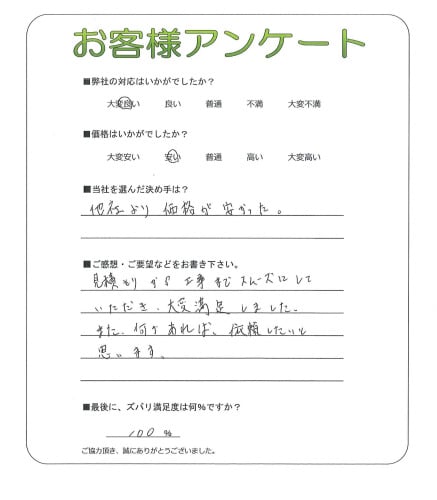 お客様アンケート
■弊社の対応はいかがでしたか？
大変良い 良い 普通 不満 大変不満
■価格はいかがでしたか？
大変安い 安い 普通 高い 大変高い
■当社を選んだ決め手は？
他社より価格が安かった。
■ご感想・ご要望などをお書き下さい。
見積もりから工事までスムーズにして
いただき、大変満足しました。
また、何かあれば、依頼したいと
思います。
■最後に、ズバリ満足度は何%ですか？
100 %
ご協力頂き、誠にありがとうございました。